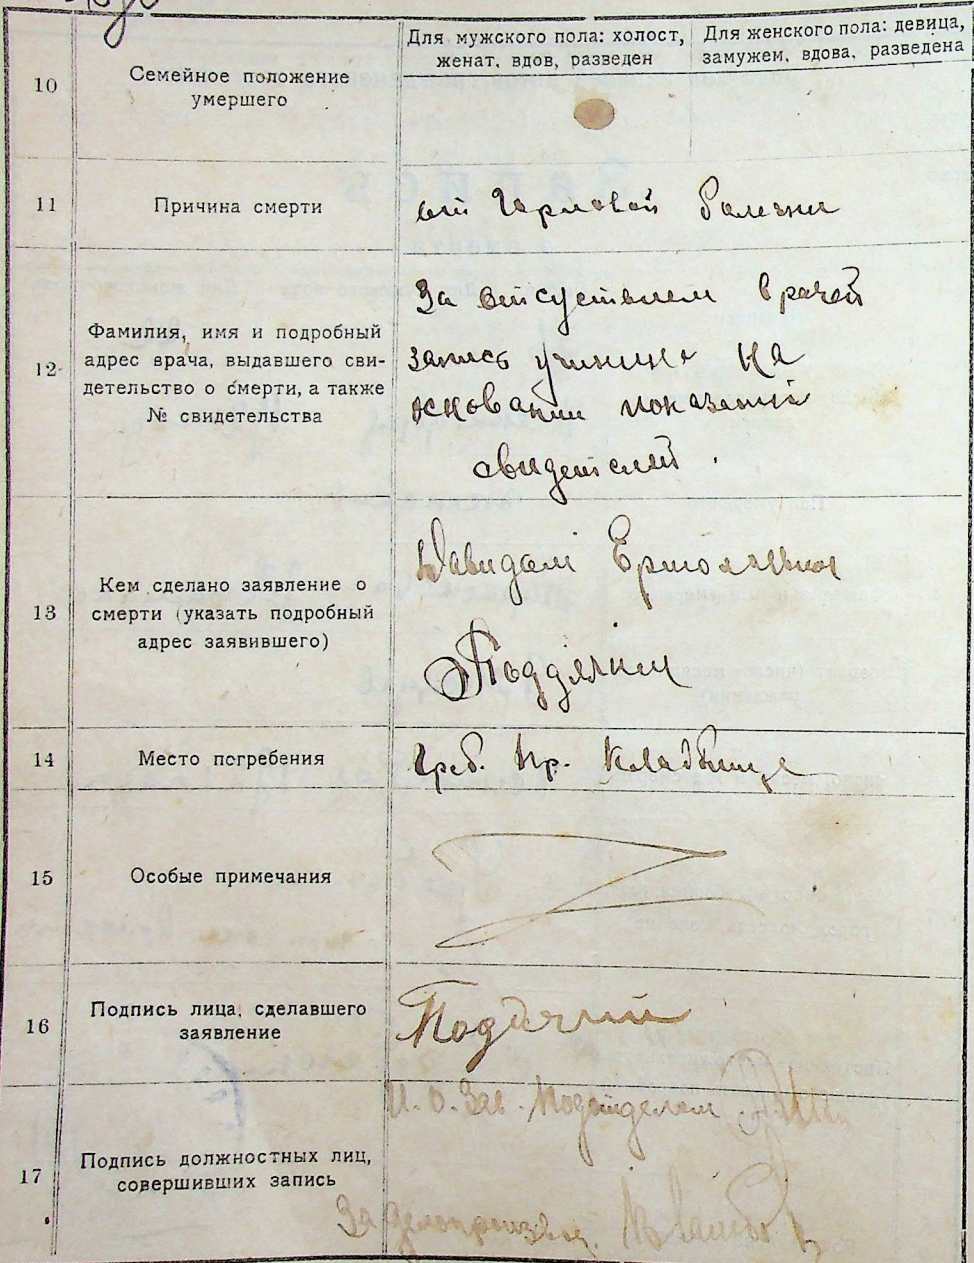 Для мужского пола: холост,
женат, вдов, разведен
Для женского пола: девица,
замужем, вдова, разведена
10
Семейное положение
умершего
11
Причина смерти
от Горловой Болезни
12
Фамилия, имя и подробный
адрес врача, выдавшего сви-
детельство о смерти, а также
№ свидетельства
За отсуствием врачей
запись учинина на
основании показаний
свидетелей.
13
Кем сделано заявление о
смерти (указать подробный
адрес заявившего)
Давидам Ермолаевым
Поддячим
14
Место погребения
Греб. Пр. Кладбище
15
Особые примечания
16
Подпись лица, сделавшего
заявление
Поддячий
17
Подпись должностных лиц,
совершивших запись
И. О. Зав. Подотделам
За делопроизвод.